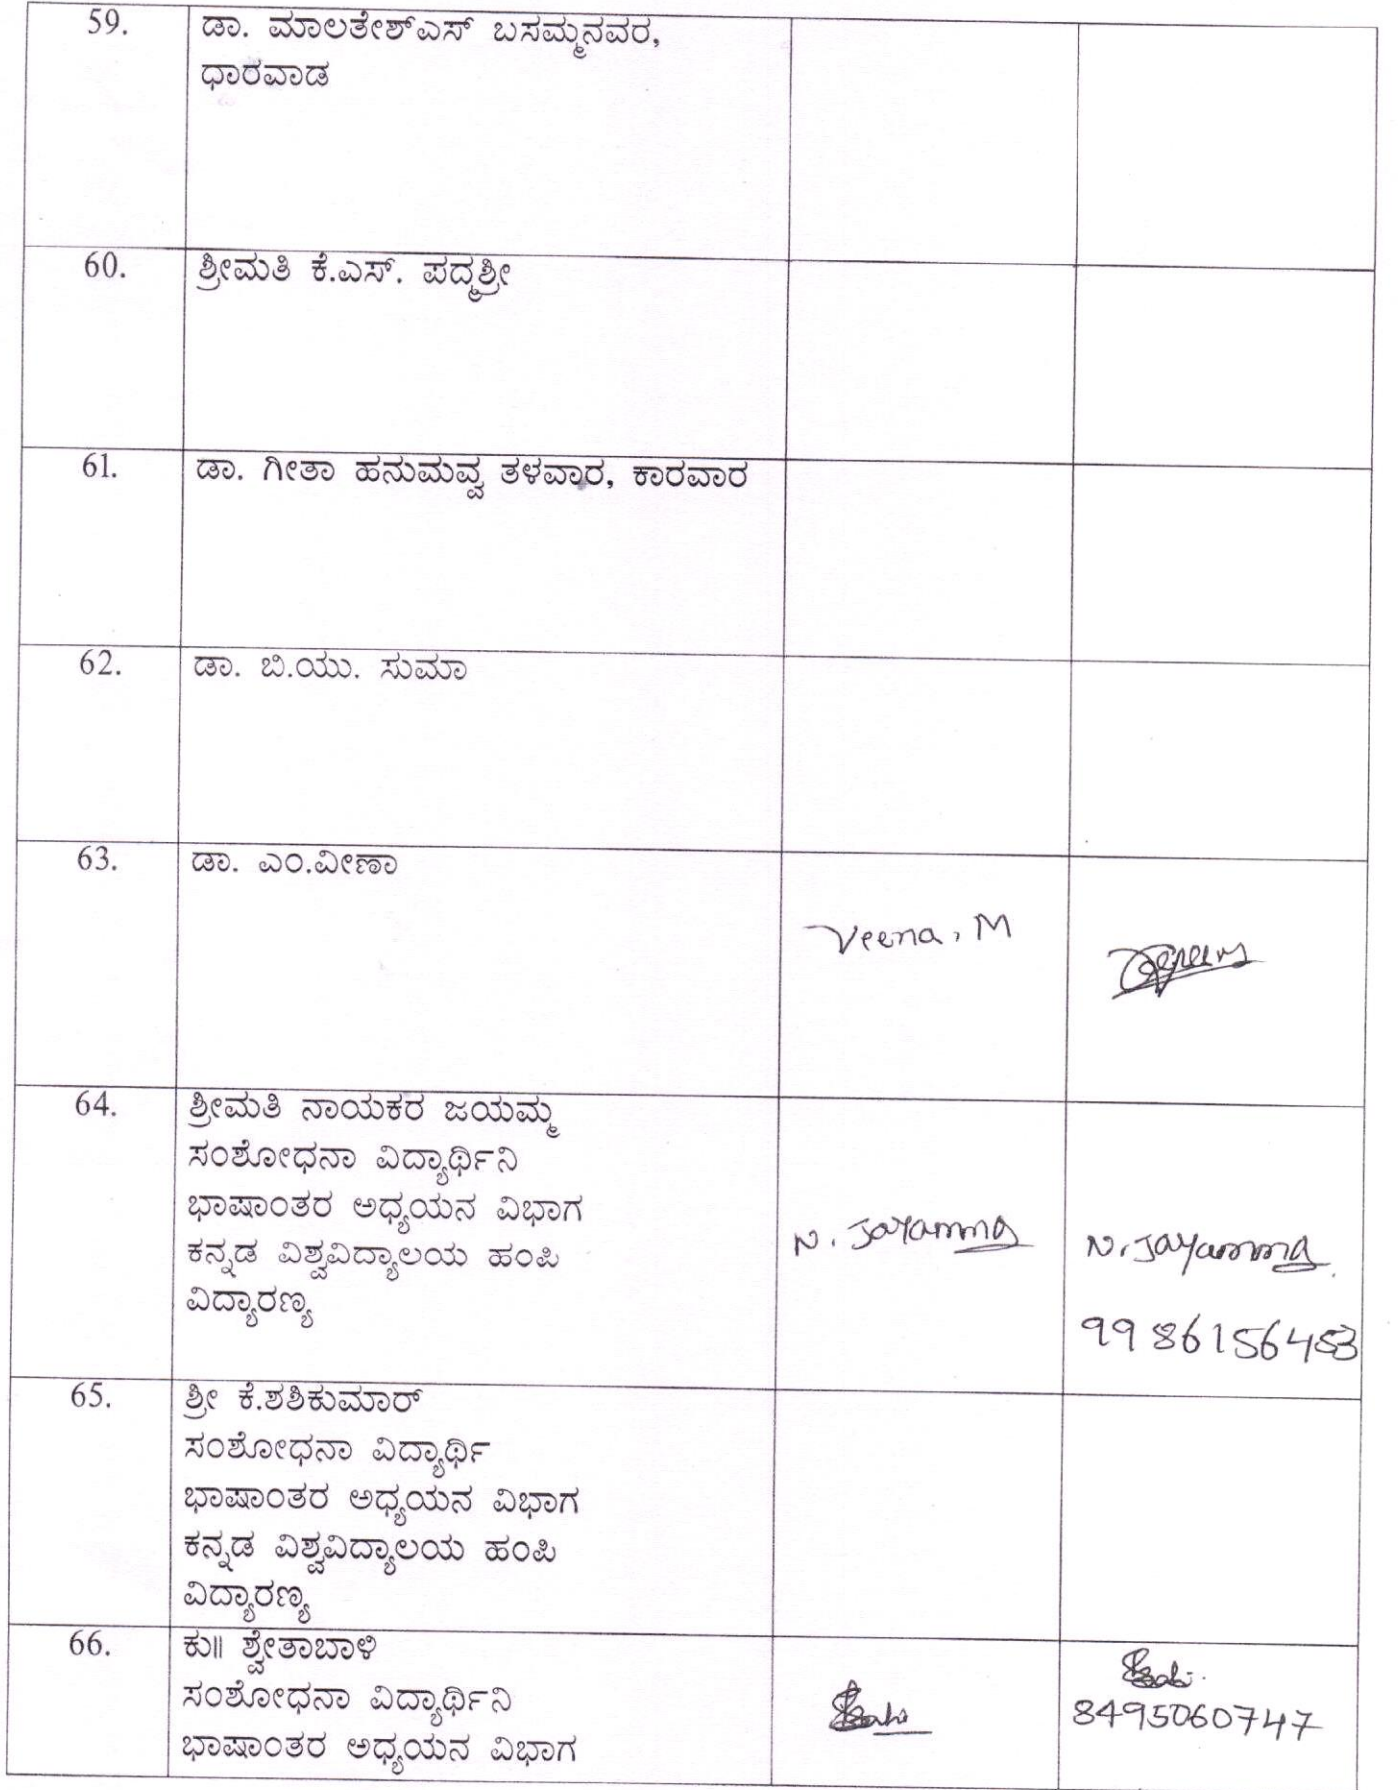 59. ಡಾ. ಮಾಲತೇಶ್‌ಎಸ್ ಬಸಮ್ಮನವರ,
ಧಾರವಾಡ
60. ಶ್ರೀಮತಿ ಕೆ.ಎಸ್. ಪದ್ಮಶ್ರೀ
61. ಡಾ. ಗೀತಾ ಹನುಮವ್ವ ತಳವಾರ, ಕಾರವಾರ
62. ಡಾ. ಬಿ.ಯು. ಸುಮಾ
63. ಡಾ. ಎಂ.ವೀಣಾ
Veena. M
64. ಶ್ರೀಮತಿ ನಾಯಕರ ಜಯಮ್ಮ
ಸಂಶೋಧನಾ ವಿದ್ಯಾರ್ಥಿನಿ
ಭಾಷಾಂತರ ಅಧ್ಯಯನ ವಿಭಾಗ
ಕನ್ನಡ ವಿಶ್ವವಿದ್ಯಾಲಯ ಹಂಪಿ
ವಿದ್ಯಾರಣ್ಯ
N. Jayamma
N. Jayamma
9986156453
65. ಶ್ರೀ ಕೆ.ಶಶಿಕುಮಾರ್
ಸಂಶೋಧನಾ ವಿದ್ಯಾರ್ಥಿ
ಭಾಷಾಂತರ ಅಧ್ಯಯನ ವಿಭಾಗ
ಕನ್ನಡ ವಿಶ್ವವಿದ್ಯಾಲಯ ಹಂಪಿ
ವಿದ್ಯಾರಣ್ಯ
66. ಕು॥ ಶ್ವೇತಾಬಾಳಿ
ಸಂಶೋಧನಾ ವಿದ್ಯಾರ್ಥಿನಿ
ಭಾಷಾಂತರ ಅಧ್ಯಯನ ವಿಭಾಗ
8495060747